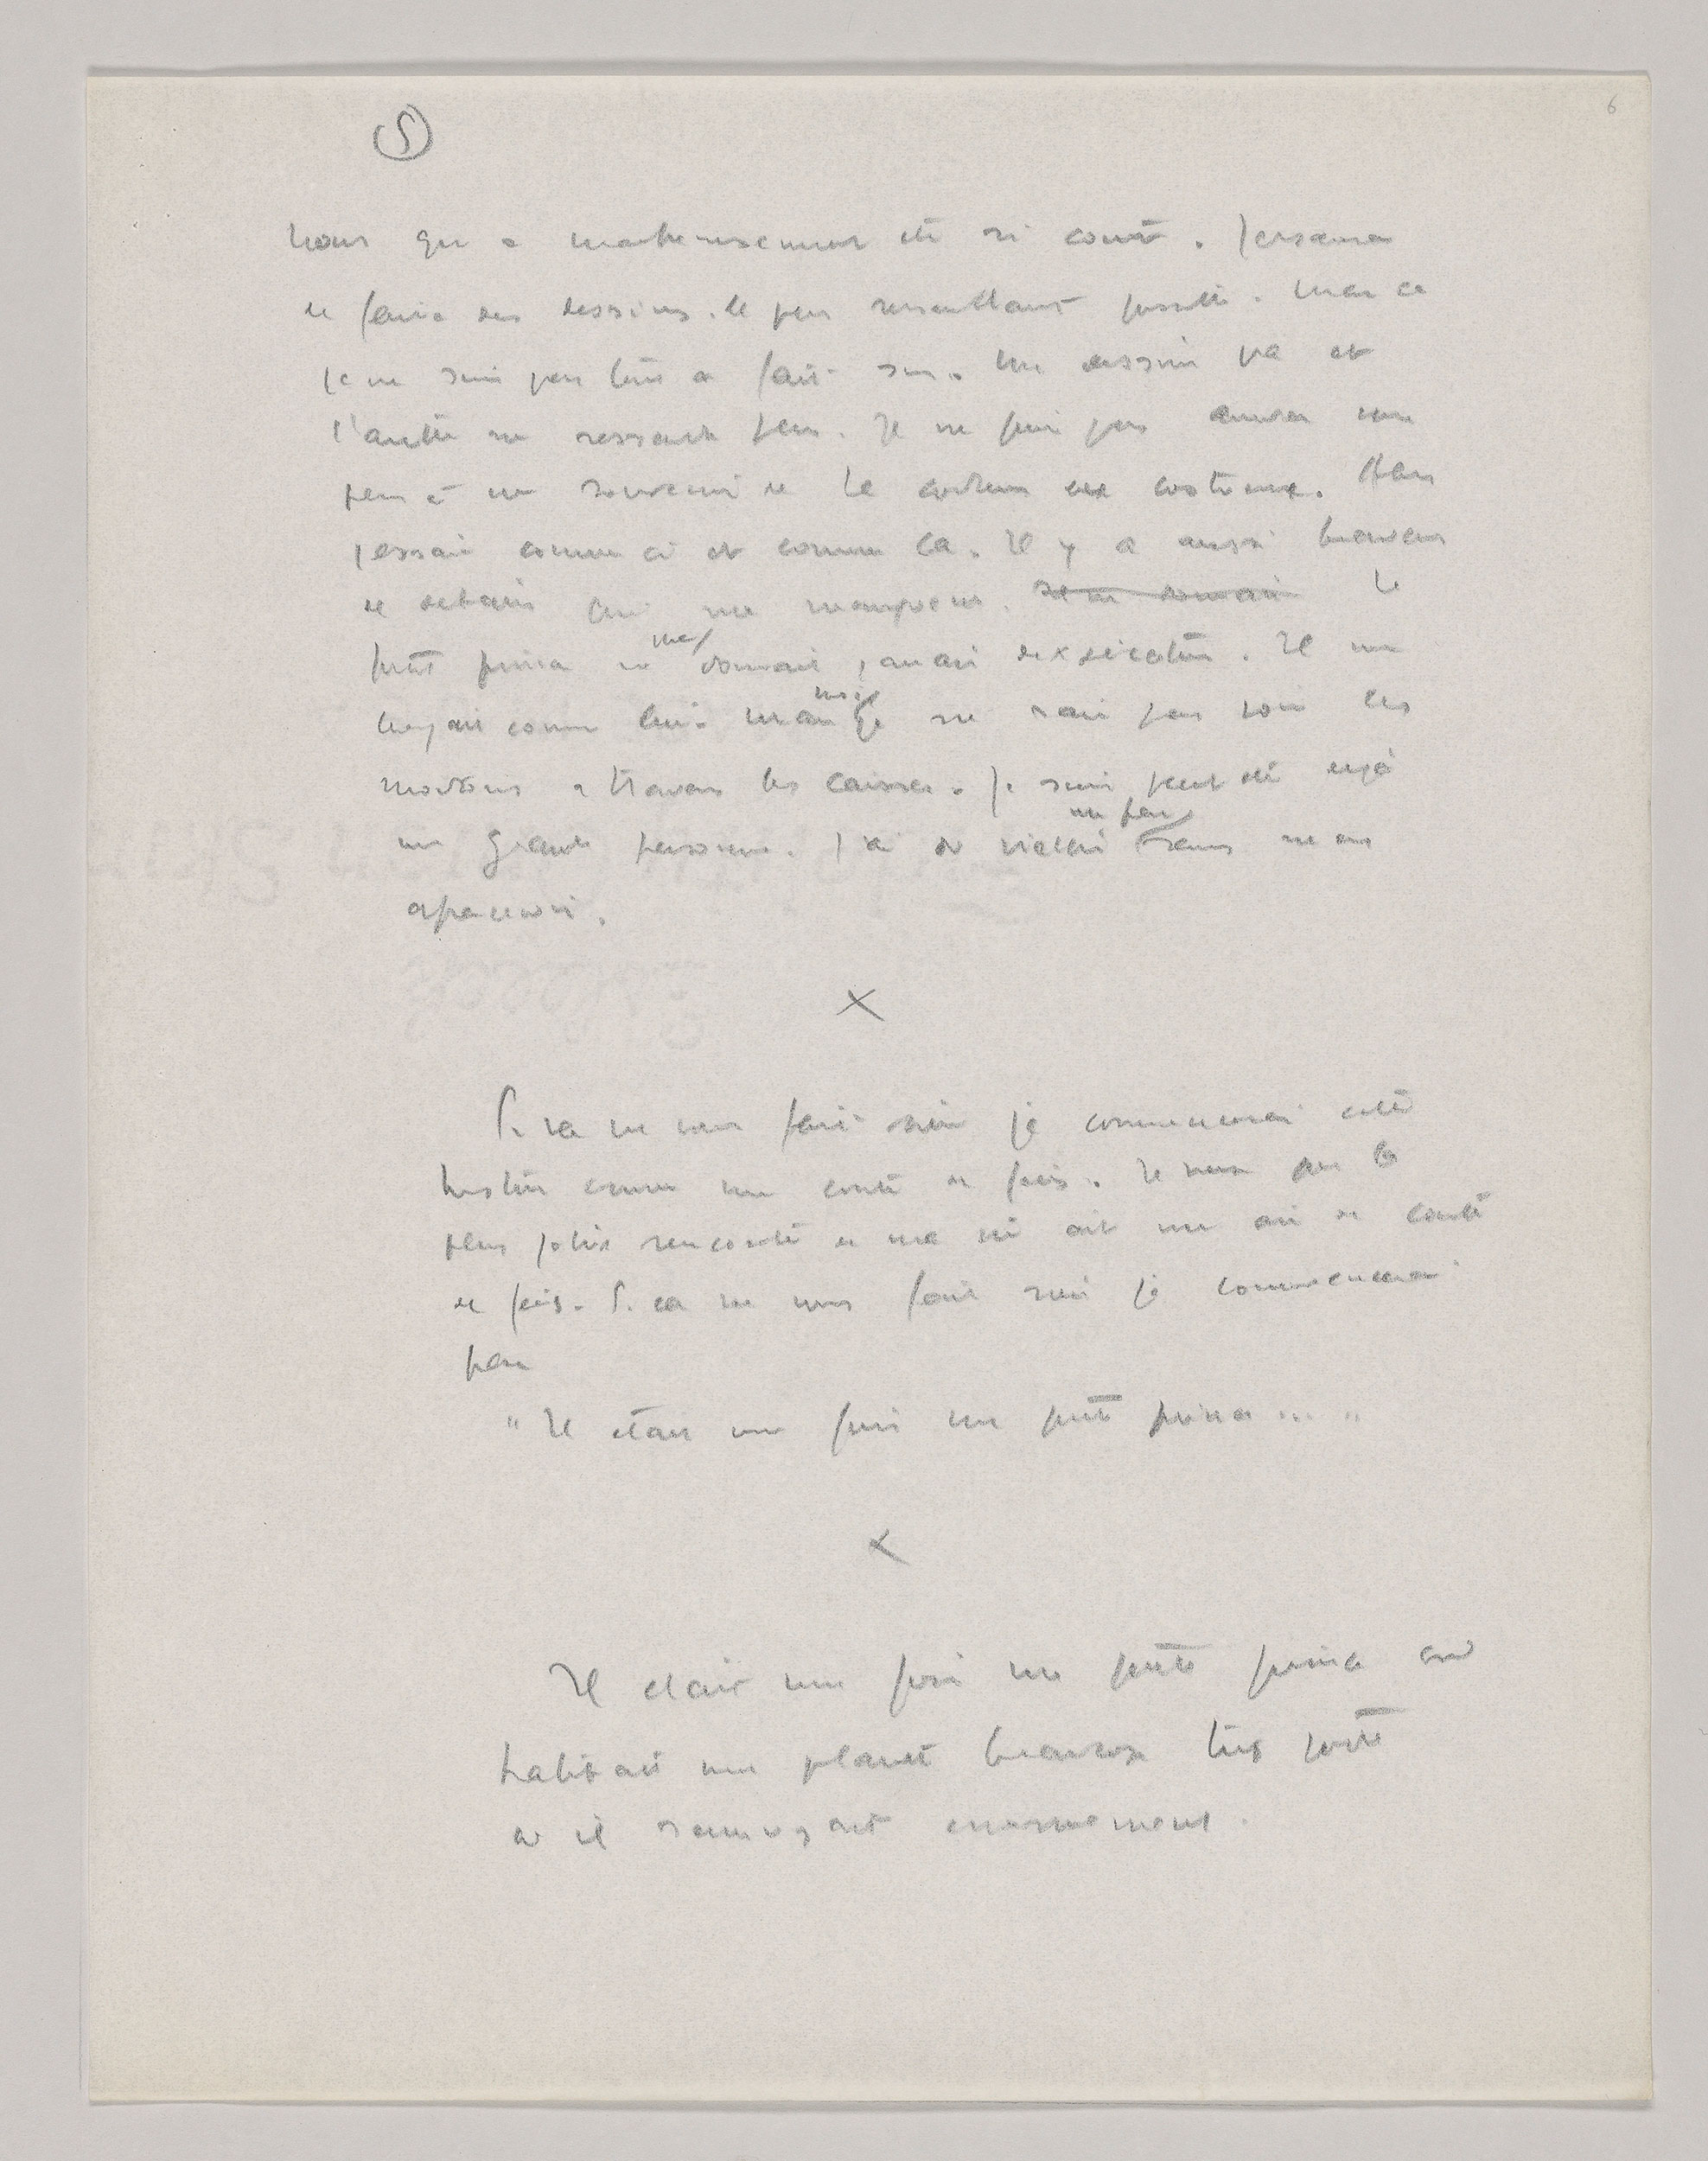 5
6
nous qui a malheureusement été si court. J'essaierai
de faire des dessins le plus ressemblant possible. Mais
je ne suis pas tout a fait sur. Un dessin va et
l'autre ne ressemble plus. Je ne puis pas non
plus me souvenir de la couleur des costumes. Alors
j'essaie comme ci et comme ca. Il y a aussi beaucoup
de details qui me manquent. Il ne donnait Le
petit prince ne me donnait jamais d'explication. Il me
croyait comme lui. Mais moi je ne sais pas voir les
moutons a travers les caisses. Je suis peut etre dejà
une grande personne. J'ai du vieillir un peu sans m'en
apercevoir.
X
Si ca ne vous fait rien je commencerai cette
histoire comme un conte de fées. Je veux que la
plus jolie rencontre de ma vie ait un air de conte
de fées. Si ca ne vous fait rien je commencerai
par
"Il etait une fois un petit prince ... "
X
Il etait une fois un petit prince qui
habitait une planete beaucoup trop petite
et il s'ennuyait enormement.